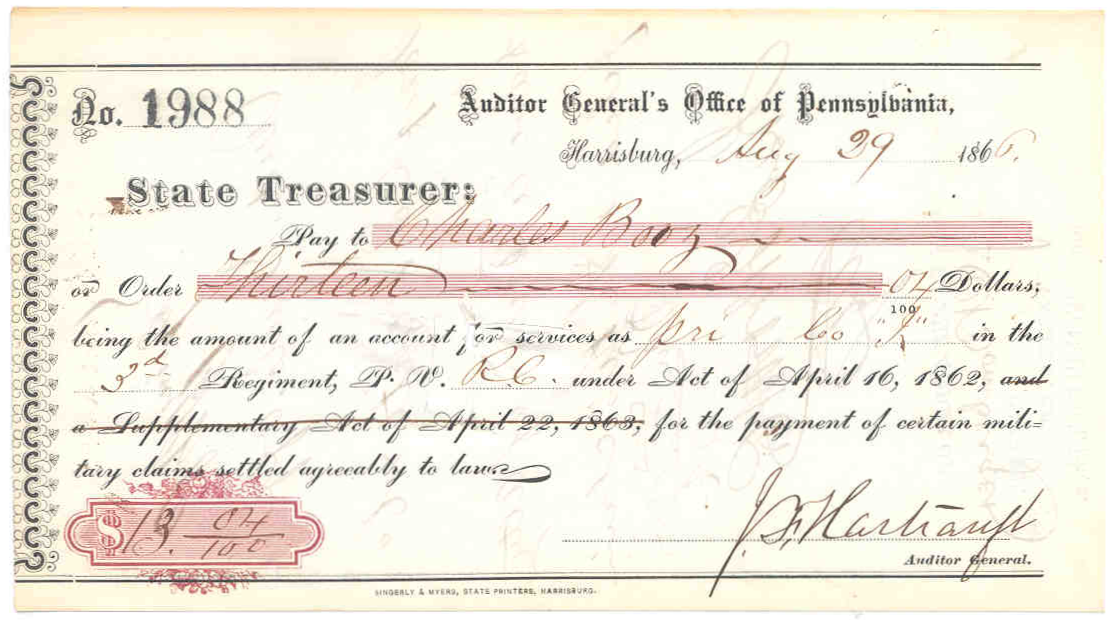 No. 1988
Auditor General's Office of Pennsylvania,
Harrisburg, Aug 29 1866.
State Treasurer:
Pay to Charles Booz
or Order Thirteen 04/100 Dollars,
being the amount of an account for services as pri Co "K" in the
3d Regiment, P. V. R.C. under Act of April 16, 1862, and
a Supplementary Act of April 22, 1863, for the payment of certain mili-
tary claims settled agreeably to law.
$13. 04/100
J. F. Hartranft
Auditor General.
SINGERLY & MYERS, STATE PRINTERS, HARRISBURG.